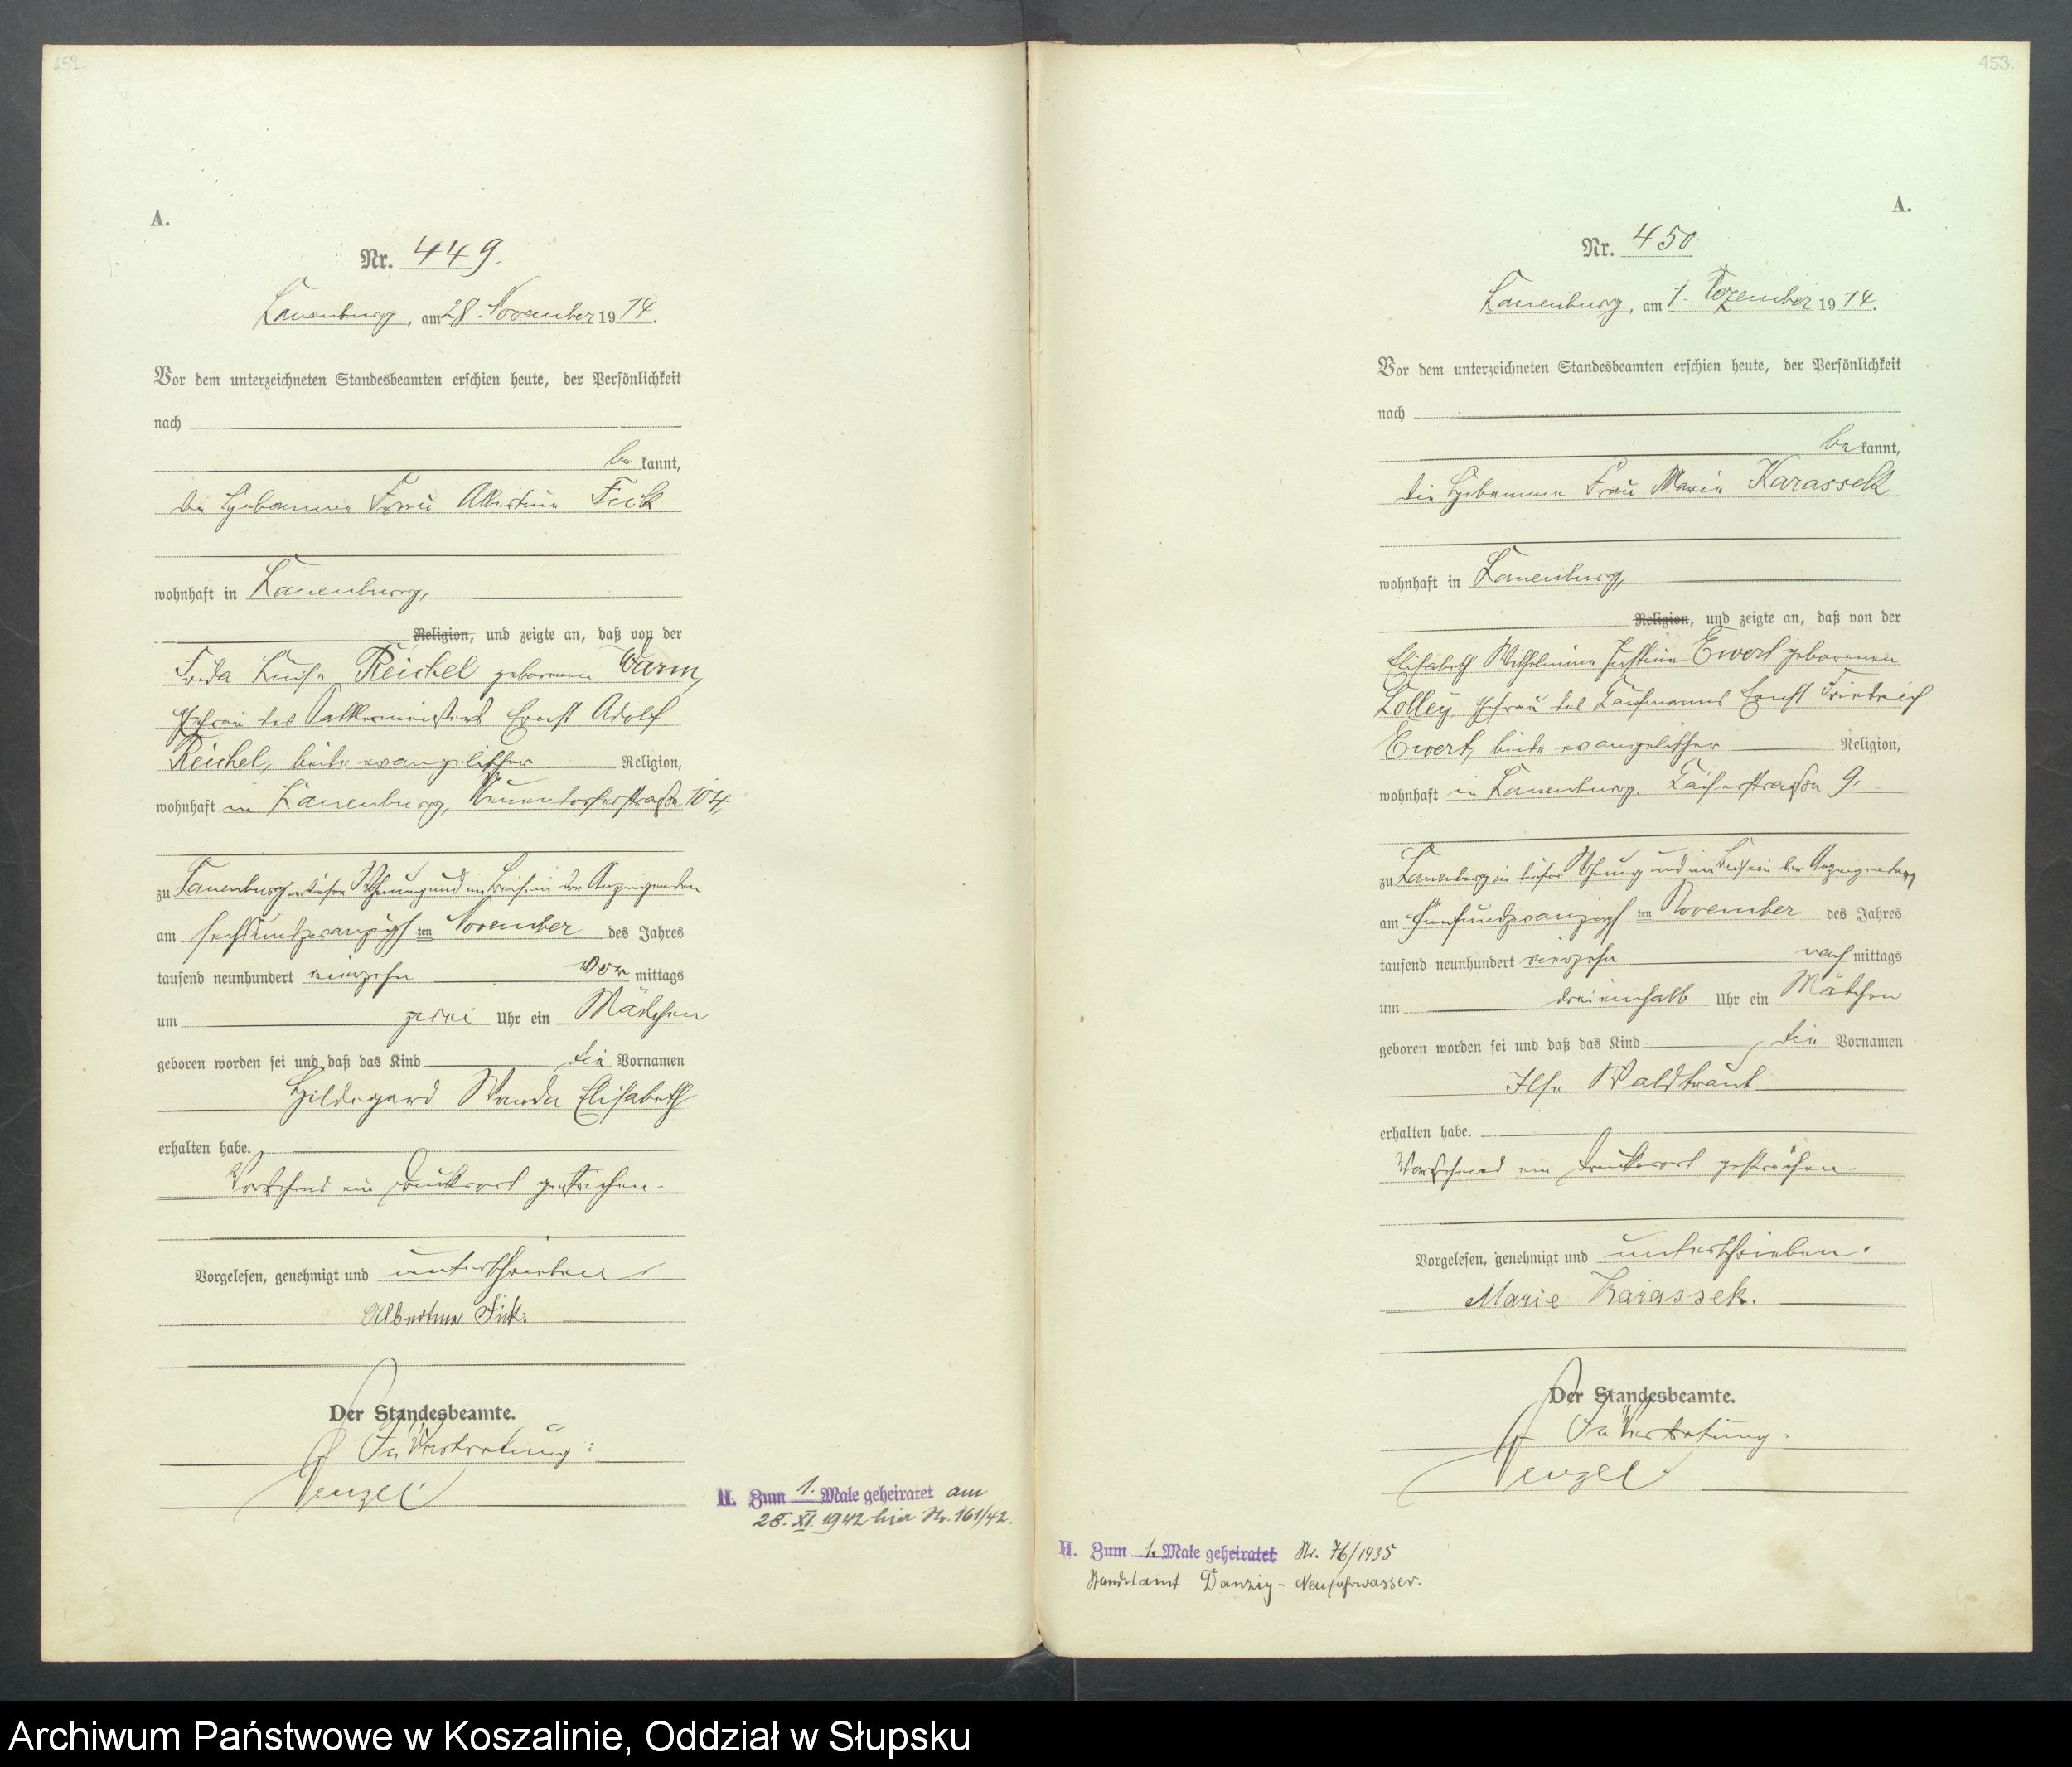 452.
A.
Nr. 449.
Lauenburg, am 28. November 1914.
Vor dem unterzeichneten Standesbeamten erschien heute, der Persönlichkeit
nach
bekannt,
die Hebamme Frau Albertine Fick
wohnhaft in Lauenburg,
Religion, und zeigte an, daß von der
Frida Luise Reichel geborenen Warm,
Ehefrau des Ernst Adolf
Reichel, beide evangelischer Religion,
wohnhaft in Lauenburg, 104,
zu Lauenburg in dieser Wohnung und im Beisein der Anzeigenden
am sechsundzwanzigsten November des Jahres
tausend neunhundert vierzehn vormittags
um zwei Uhr ein Mädchen
geboren worden sei und daß das Kind die Vornamen
Hildegard Wanda Elisabeth
erhalten habe.
Vorstehend ein Druckwort gestrichen.
Vorgelesen, genehmigt und unterschrieben.
Albertine Fick.
Der Standesbeamte.
In Vertretung:
Wenzel
H. Zum 1. Male geheiratet am
28. XI. 1942 hier Nr. 161/42.
453.
A.
Nr. 450
Lauenburg, am 1. Dezember 1914.
Vor dem unterzeichneten Standesbeamten erschien heute, der Persönlichkeit
nach
bekannt,
die Hebamme Frau Marie Karassek
wohnhaft in Lauenburg,
Religion, und zeigte an, daß von der
Elisabeth Wilhelmine Justine Ewert geborenen
Lolley, Ehefrau des Kaufmanns Ernst Friedrich
Ewert, beide evangelischer Religion,
wohnhaft in Lauenburg, 9,
zu Lauenburg in dieser Wohnung und im Beisein der Anzeigenden
am fünfundzwanzigsten November des Jahres
tausend neunhundert vierzehn nachmittags
um dreieinhalb Uhr ein Mädchen
geboren worden sei und daß das Kind die Vornamen
Ilse Waldtraut
erhalten habe.
Vorstehend ein Druckwort gestrichen.
Vorgelesen, genehmigt und unterschrieben.
Marie Karassek.
Der Standesbeamte.
In Vertretung:
Wenzel
H. Zum 1. Male geheiratet Nr. 76/1935
Standesamt Danzig-Neufahrwasser.
Archiwum Państwowe w Koszalinie, Oddział w Słupsku